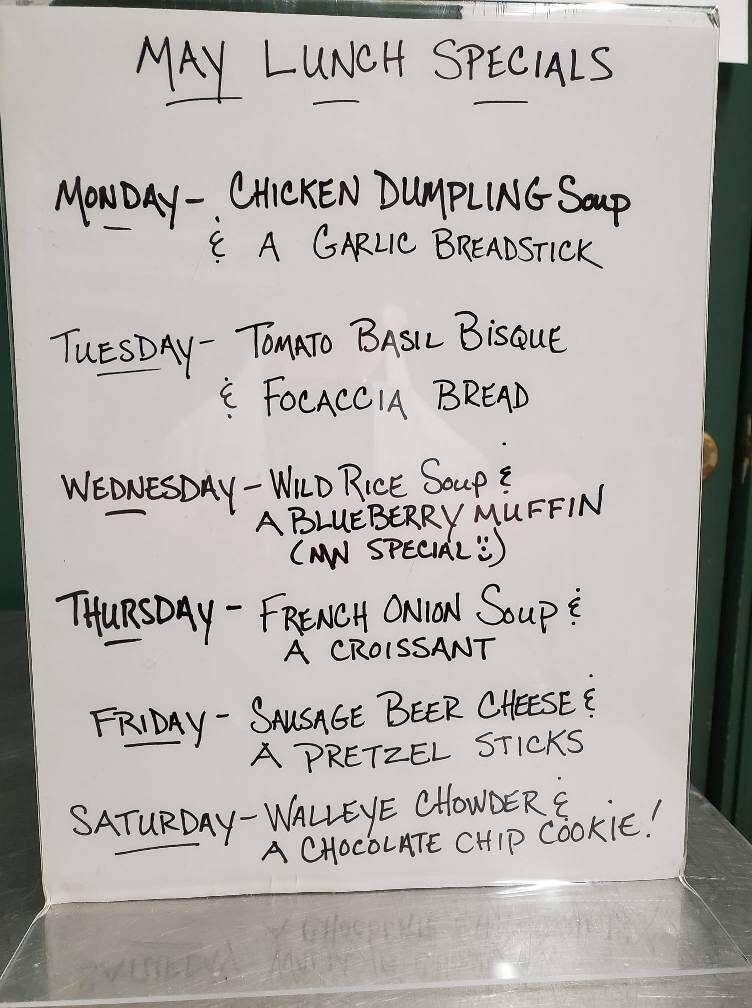 MAY LUNCH SPECIALS
MONDAY - CHICKEN DUMPLING Soup
& A GARLIC BREADSTICK
TUESDAY - TOMATO BASIL BISQUE
& FOCACCIA BREAD
WEDNESDAY - WILD RICE Soup &
A BLUEBERRY MUFFIN
(MN SPECIAL :))
THURSDAY - FRENCH ONION Soup &
A CROISSANT
FRIDAY - SAUSAGE BEER CHEESE &
A PRETZEL STICKS
SATURDAY - WALLEYE CHOWDER &
A CHOCOLATE CHIP COOKIE!